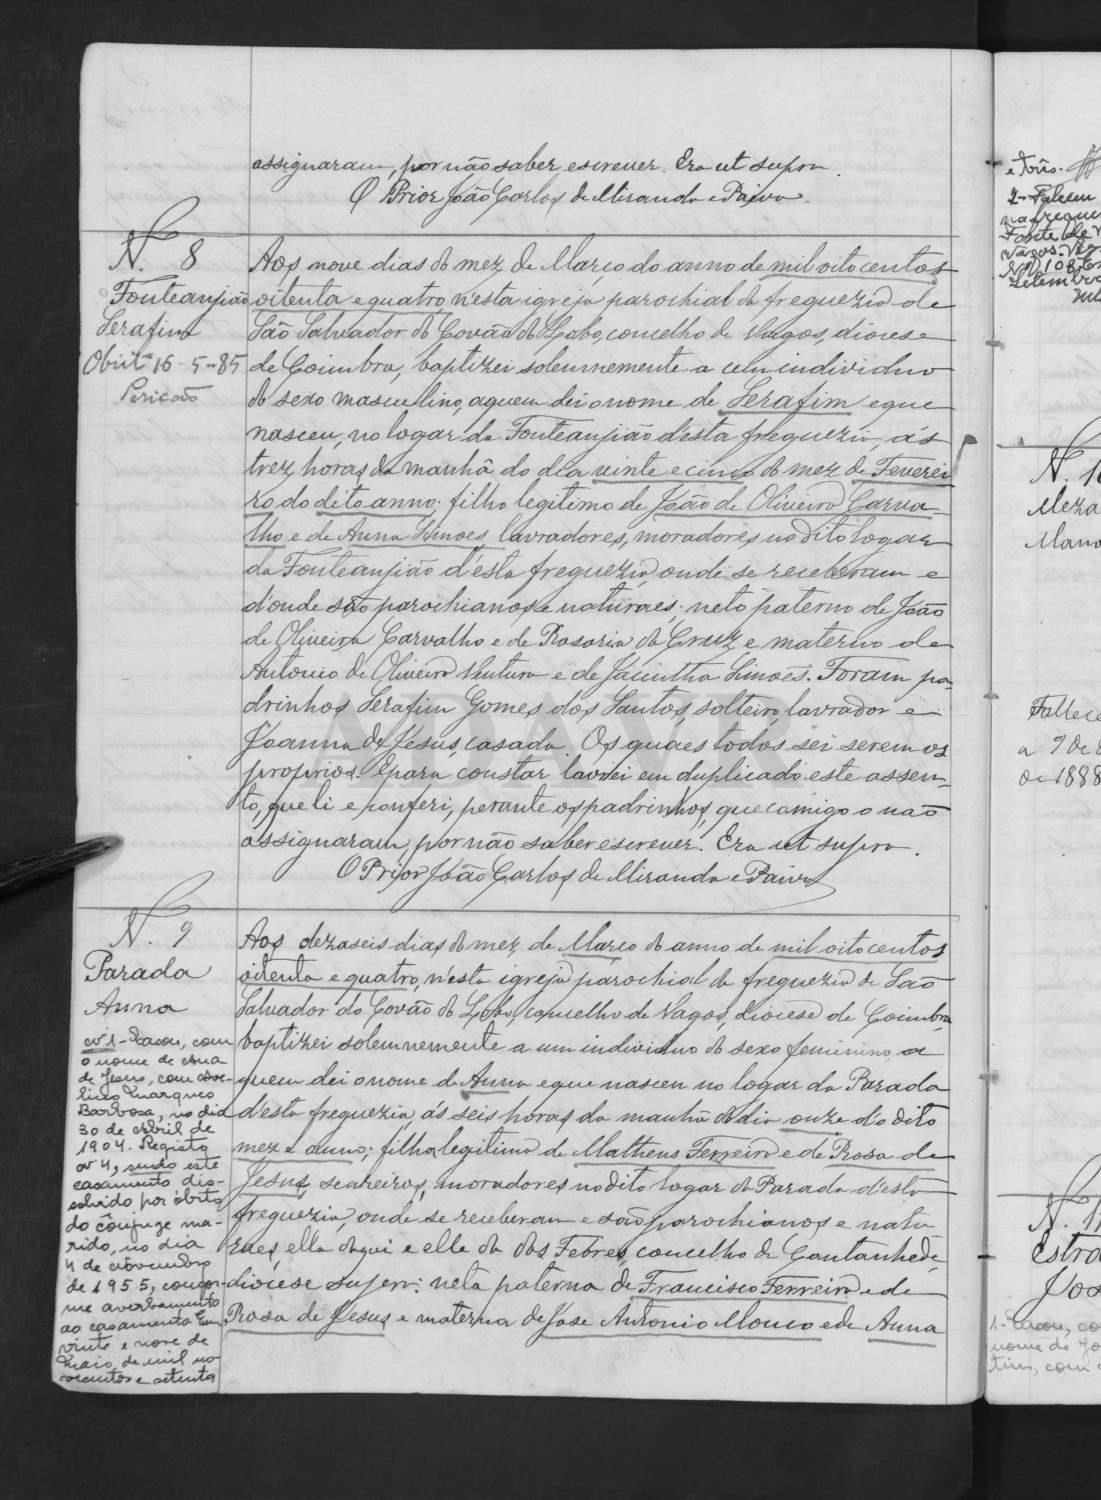 assignaram, por não saber escrever. Era ut supra.
O Prior João Carlos de Miranda e Paiva.
N. 8
Fonteanjião
Serafim
Obiit 16-5-85
Aos nove dias do mez de Março do anno de mil oito centos
oitenta e quatro, n'esta igreja parochial da freguezia de
São Salvador do Covão do Lobo, concelho de Vagos, diocese
de Coimbra, baptizei solemnemente a um individuo
do sexo masculino, a quem dei o nome de Serafim e que
nasceu, no logar da Fonteanjião d'esta freguezia, ás
trez horas da manhã do dia vinte e cinco do mez de Feverei
ro do dito anno; filho legitimo de João de Oliveira Carva-
lho e de Anna Simoes, lavradores, moradores no dito logar
da Fonteanjião d'esta freguezia, onde se receberam e
d'onde são parochianos e naturaes; neto paterno de João
de Oliveira Carvalho e de Rosaria da Cruz, e materno de
Antonio de Oliveira Ventura e de Jacintha Simoes. Foram pa-
drinhos Serafim Gomes dos Santos, solteiro, lavrador e
Joanna de Jesus, casada. Os quaes todos sei serem os
proprios. E para constar lavrei em duplicado este assen-
to, que li e conferi, perante os padrinhos, que comigo o não
assignaram, por não saber escrever. Era ut supra.
O Prior João Carlos de Miranda e Paiva
N. 9
Parada
Anna
Nº 1 - Casou, com
o nome de Ana
de Jesus, com Ave-
lino Marques
Barbosa, no dia
30 de Abril de
1904. Registo
nº 4, sendo este
casamento dis-
solvido por óbito
do cônjuge ma-
rido, no dia
4 de Novembro
de 1955, confor-
me averbamento
ao casamento. Em
vinte e nove de
Maio de mil no-
vecentos e setenta
Aos dezaseis dias do mez de Março do anno de mil oito centos
oitenta e quatro, n'esta igreja parochial da freguezia de São
Salvador do Covão do Lobo, concelho de Vagos, diocese de Coimbra,
baptizei solemnemente a um individuo do sexo feminino, a
quem dei o nome de Anna e que nasceu no logar da Parada
d'esta freguezia, ás seis horas da manhã do dia onze do dito
mez e anno; filha legitima de Matheus Ferreira e de Rosa de
Jesus, seareiros, moradores no dito logar da Parada d'esta
freguezia, onde se receberam e são parochianos e natu
raes, ella d'aqui e elle da das Febres, concelho de Cantanhede,
diocese supra: neta paterna de Francisco Ferreira e de
Rosa de Jesus e materna de Jose Antonio Mouco e de Anna
e três.
Fonte de
Vagos.
Nº 108
Setembro
N. 10
Fallece
a 9 de
de 1888
N. 11
Estra
1 - Casou, co
nome de Jo
tins, com
APAVR